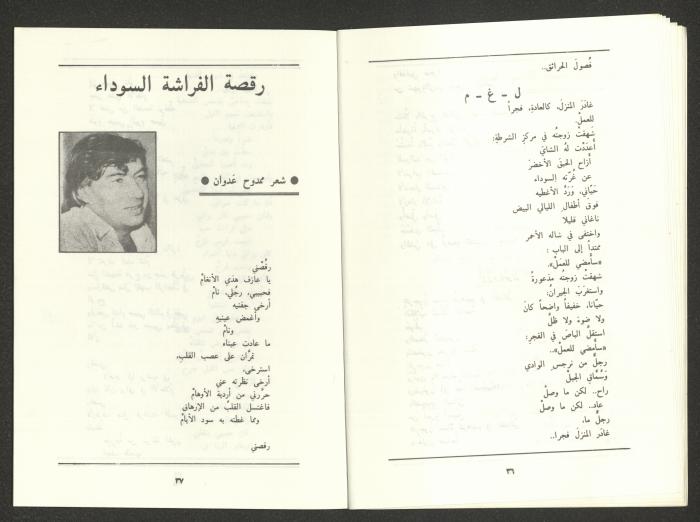 فُصولَ الحرائق..
ل - غ - م
غادَرَ المنزلَ، كالعادةِ، فجراً
للعملْ.
شَهقتْ زوجتُه في مركزِ الشرطةِ:
أعدَدْت لهُ الشايَ
أزاح الحبقَ الأخضرَ
عن غُرّته السوداء
حيّاني، وَرَدَّ الأغطيه
فوق أطفالِ الليالي البيض
ناغاني قليلا
واختفى في شاله الأحمر
ممتداً إلى الباب :
«سأمضي للعملْ».
شهقتْ زوجتُه مذعورةً
واستغربَ الجيرانُ:
حيّانا، خفيفاً واضحاً كانَ
ولا ضوءَ ولا ظلَّ
استقلَّ الباصَ في الفجرِ:
«سأمضي للعملْ»..
رجلٌ من نرجسِ الوادي
وسُمّاقِ الجبلْ
راح.. لكن ما وصلْ
عاد.. لكن ما وصلْ
رجلٌ ما،
غادَرَ المنزلَ فجرا..
٣٦
رقصة الفراشة السوداء
● شعر ممدوح عَدوان ●
رقّصْني
يا عازف هذي الأنغامْ
فحبيبي، رجُلي، نامْ
أرخى جفنيه
وأغمض عينيهِ
ونامْ
ما عادت عيناه
تمرّان على عصب القلبِ،
استرخى،
أرخى نظرته عني
حرّرني من أردية الأوهامْ
فاغتسل القلبُ من الإرهاق
ومما غطته به سود الأيامْ
رقصني
٣٧